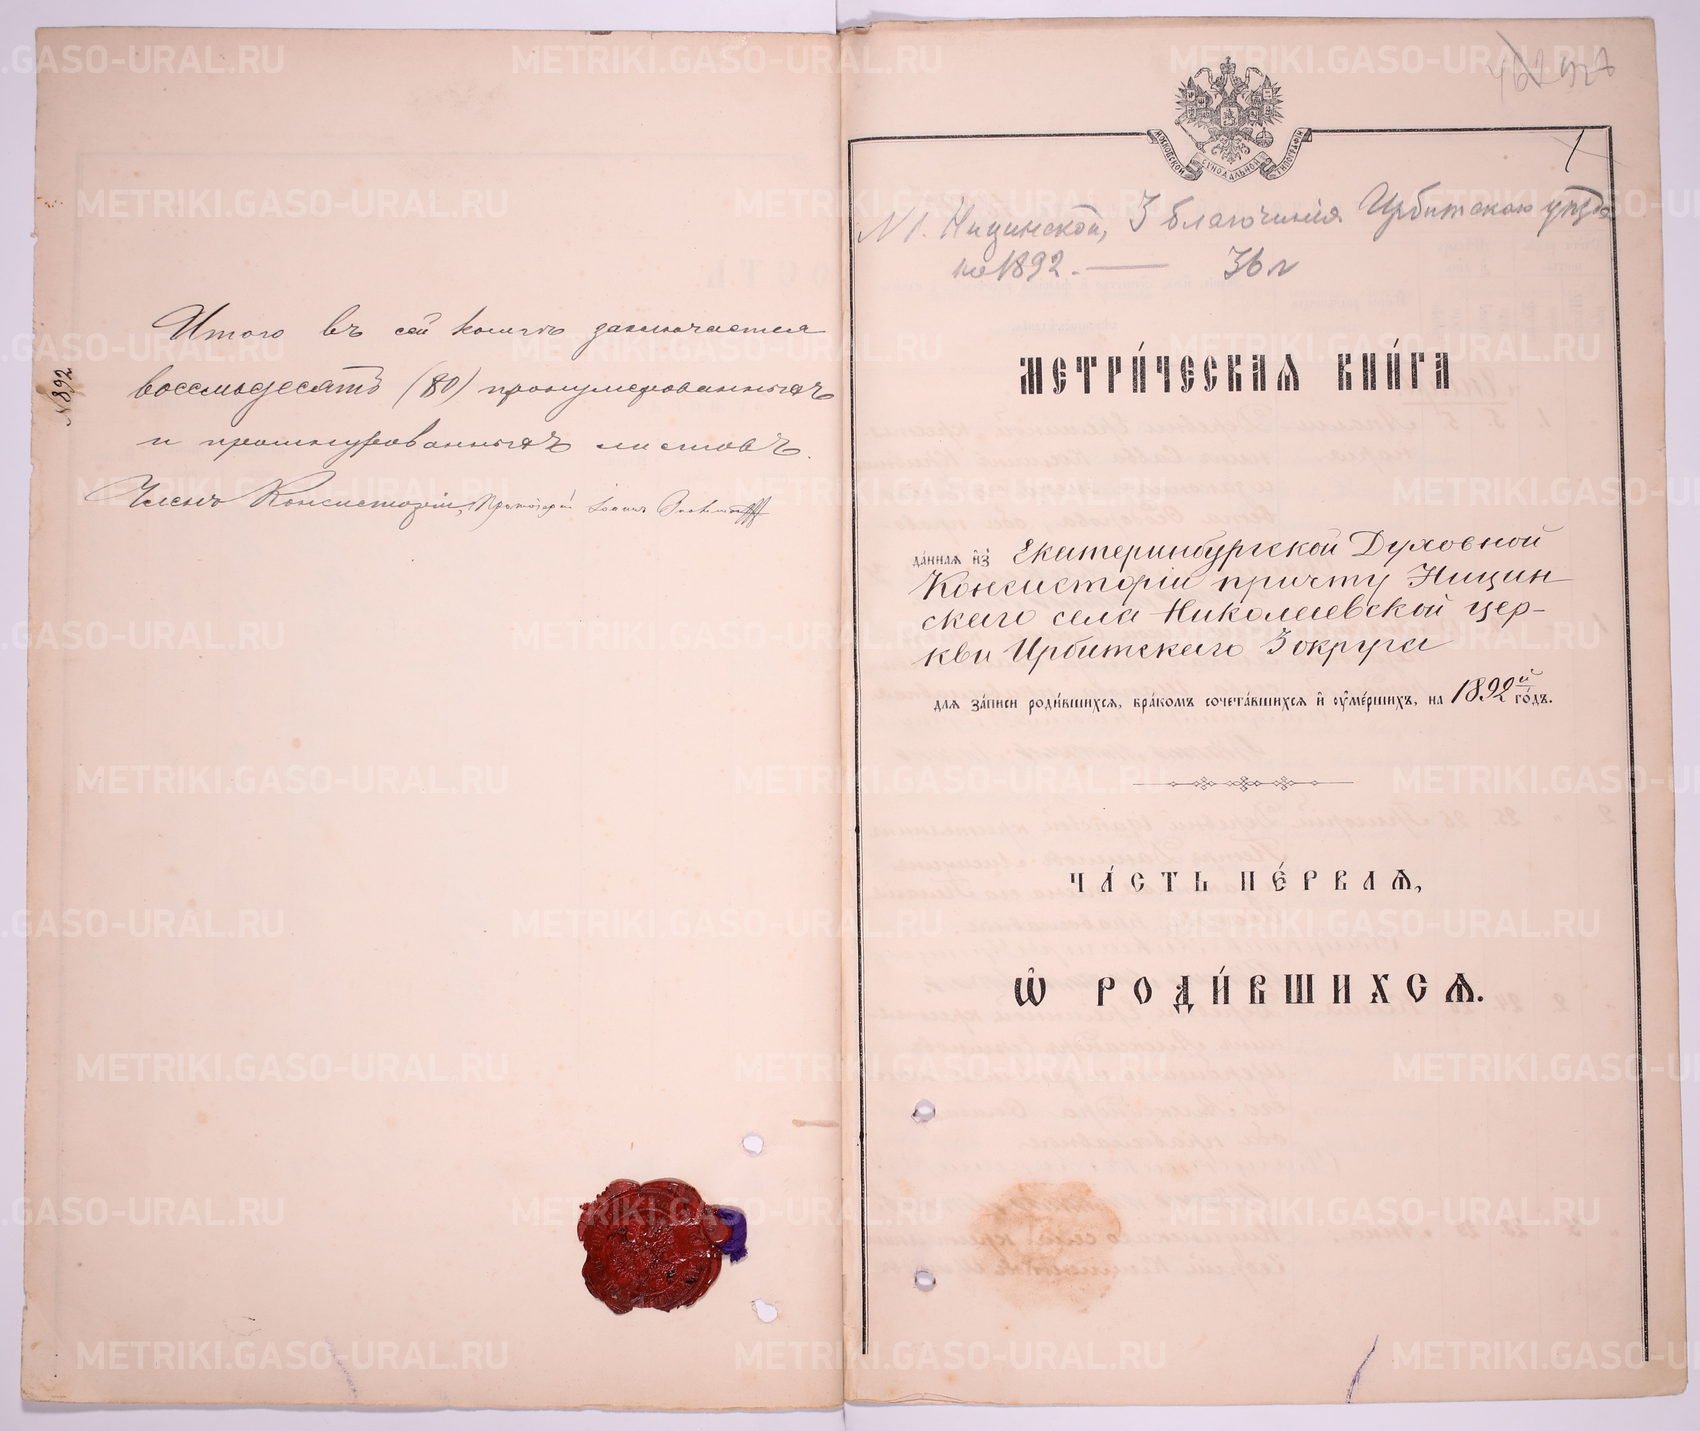 № 892
Итого въ сей книгѣ заключается
восемьдесятъ (80) пронумерованныхъ
и прошнурованныхъ листовъ.
Членъ Консисторіи, Протоіерей Іоаннъ
927
МОСКОВСКОЙ СѴНОДАЛЬНОЙ ТИПОГРАФІИ
1
N 1. Ницинской, 3 благочинія Ирбитскаго уѣзда
на 1892. — 36 л
МЕТРИ́ЧЕСКАѦ КНИ́ГА
да́ннаѧ и҆з̾ Екатеринбургской Духовной
Консисторіи причту Ницин
скаго села Николаевской цер-
кви Ирбитскаго 3 округа
длѧ за́писи роди́вшихсѧ, бра́комъ сочета́вшихсѧ и҆ ѹ҆ме́ршихъ, на 1892й го́дъ.
ЧА́СТЬ ПЕ́РВАѦ,
Ѽ РОДИ́ВШИХСѦ.
METRIKI.GASO-URAL.RU